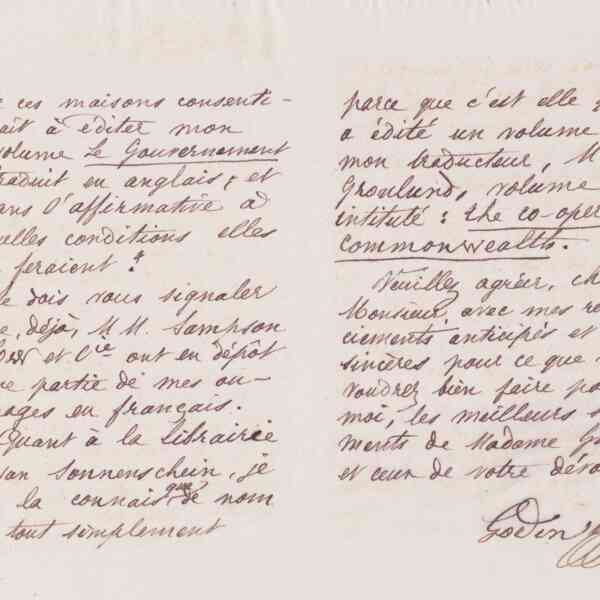 ces maisons consenti-
ait à éditer mon
volume Le Gouvernement
traduit en anglais, et
ans l'affirmative à
elles conditions elles
feraient ?
e dois vous signaler
e, déjà, M.M. Sampson
et Cie ont en dépôt
e partie de mes ou-
ages en français.
Quant à la Librairie
an Sonnenschein, je
la connais que de nom
tout simplement
parce que c'est elle
a édité un volume
mon traducteur, M
Gronlund, volume
intitulé : The co-oper
commonwealth.
Veuillez agréer, ch
Monsieur, avec mes re
ciements anticipés et
sincères pour ce que
voudrez bien faire po
moi, les meilleurs s
ments de Madame Go
et ceux de votre dévo
Godin